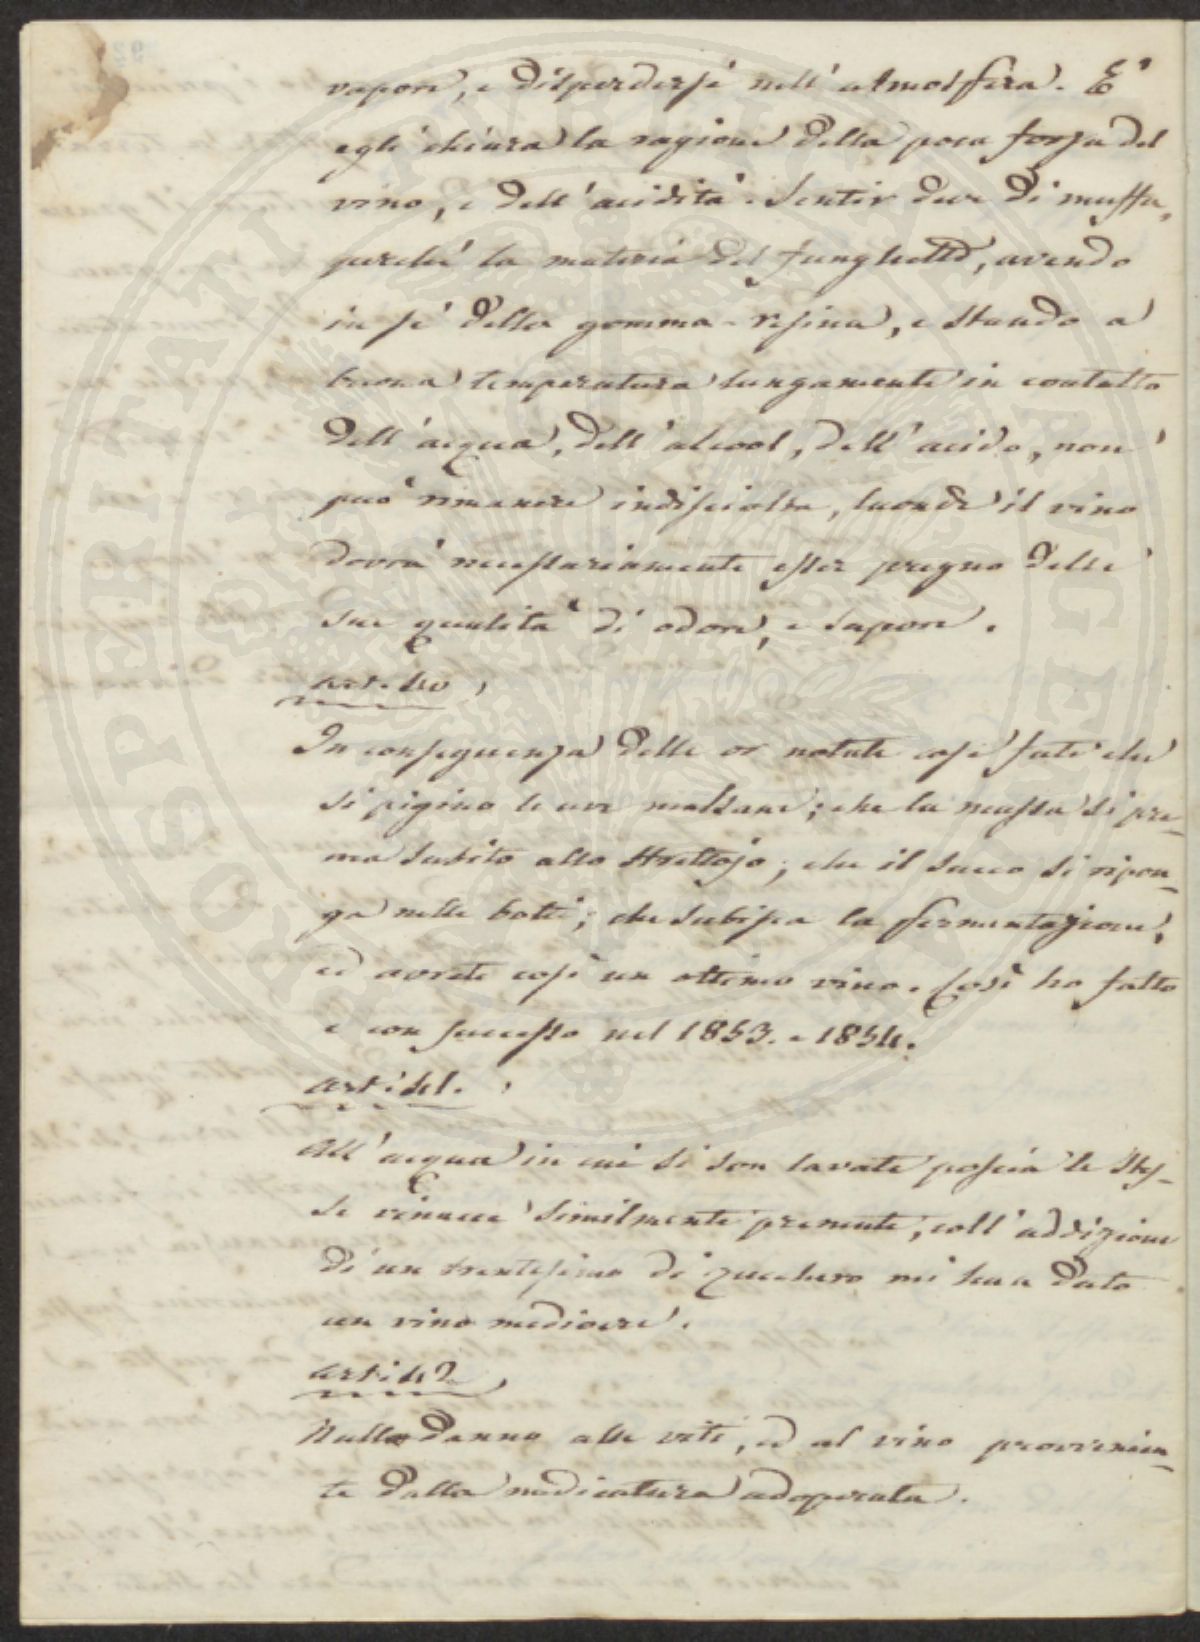 vapore, e disperdersi nell'atmosfera. E'
egli chiara la ragione della poca forza del
vino, e dell'acidità. Sentir deve di muffa,
perché la materia del funghetto, avendo
in se della gomma-resina, e stando a
buona temperatura lungamente in contatto
dell'acqua, dell'alcool, dell'acido, non
può rimanere indisciolta, laonde il vino
dovrà necessariamente esser pregno delle
sue qualità di odore, e sapore.
art. 40
In conseguenza delle or notate cose fate che
si pigino le uve malsane; che la massa si pre-
ma subito allo strettojo; che il succo si ripon-
ga nelle botti; che subisca la fermentazione,
ed avrete così un ottimo vino. Così ho fatto
e con successo nel 1853. e 1854.
art: 41.
All'acqua in cui si son lavate poscia le stes-
se vinacce similmente premute, coll'addizione
di un trentesimo di zucchero mi ha dato
un vino mediocre.
art: 42
Nullo danno alle viti, ed al vino provvenien-
te dalla medicatura adoperata.
PROSPERITATI PUBLICAE AUGENDAE